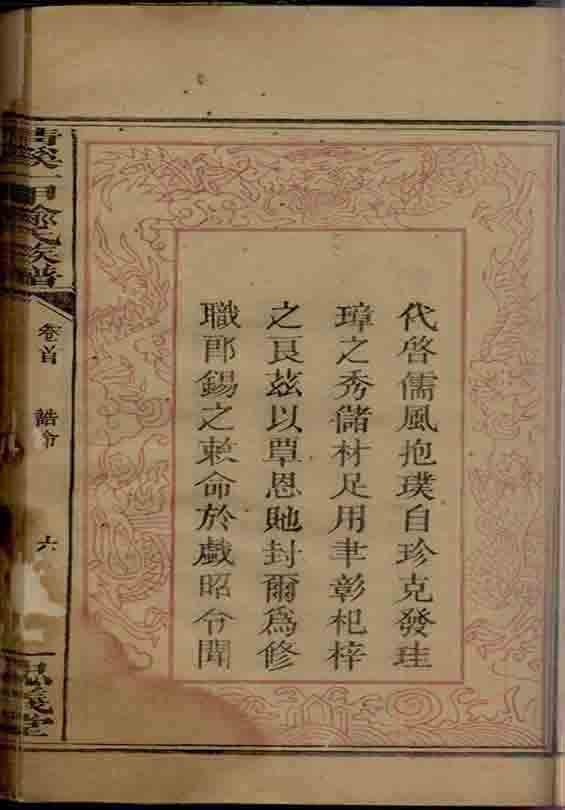 代啓儒風抱璞自珍克發珪
璋之秀儲材足用聿彰杞梓
之良茲以覃恩貤封爾爲修
職郎錫之敕命於戲昭令聞
一甲徐氏族譜
卷首
誥命
六
義堂